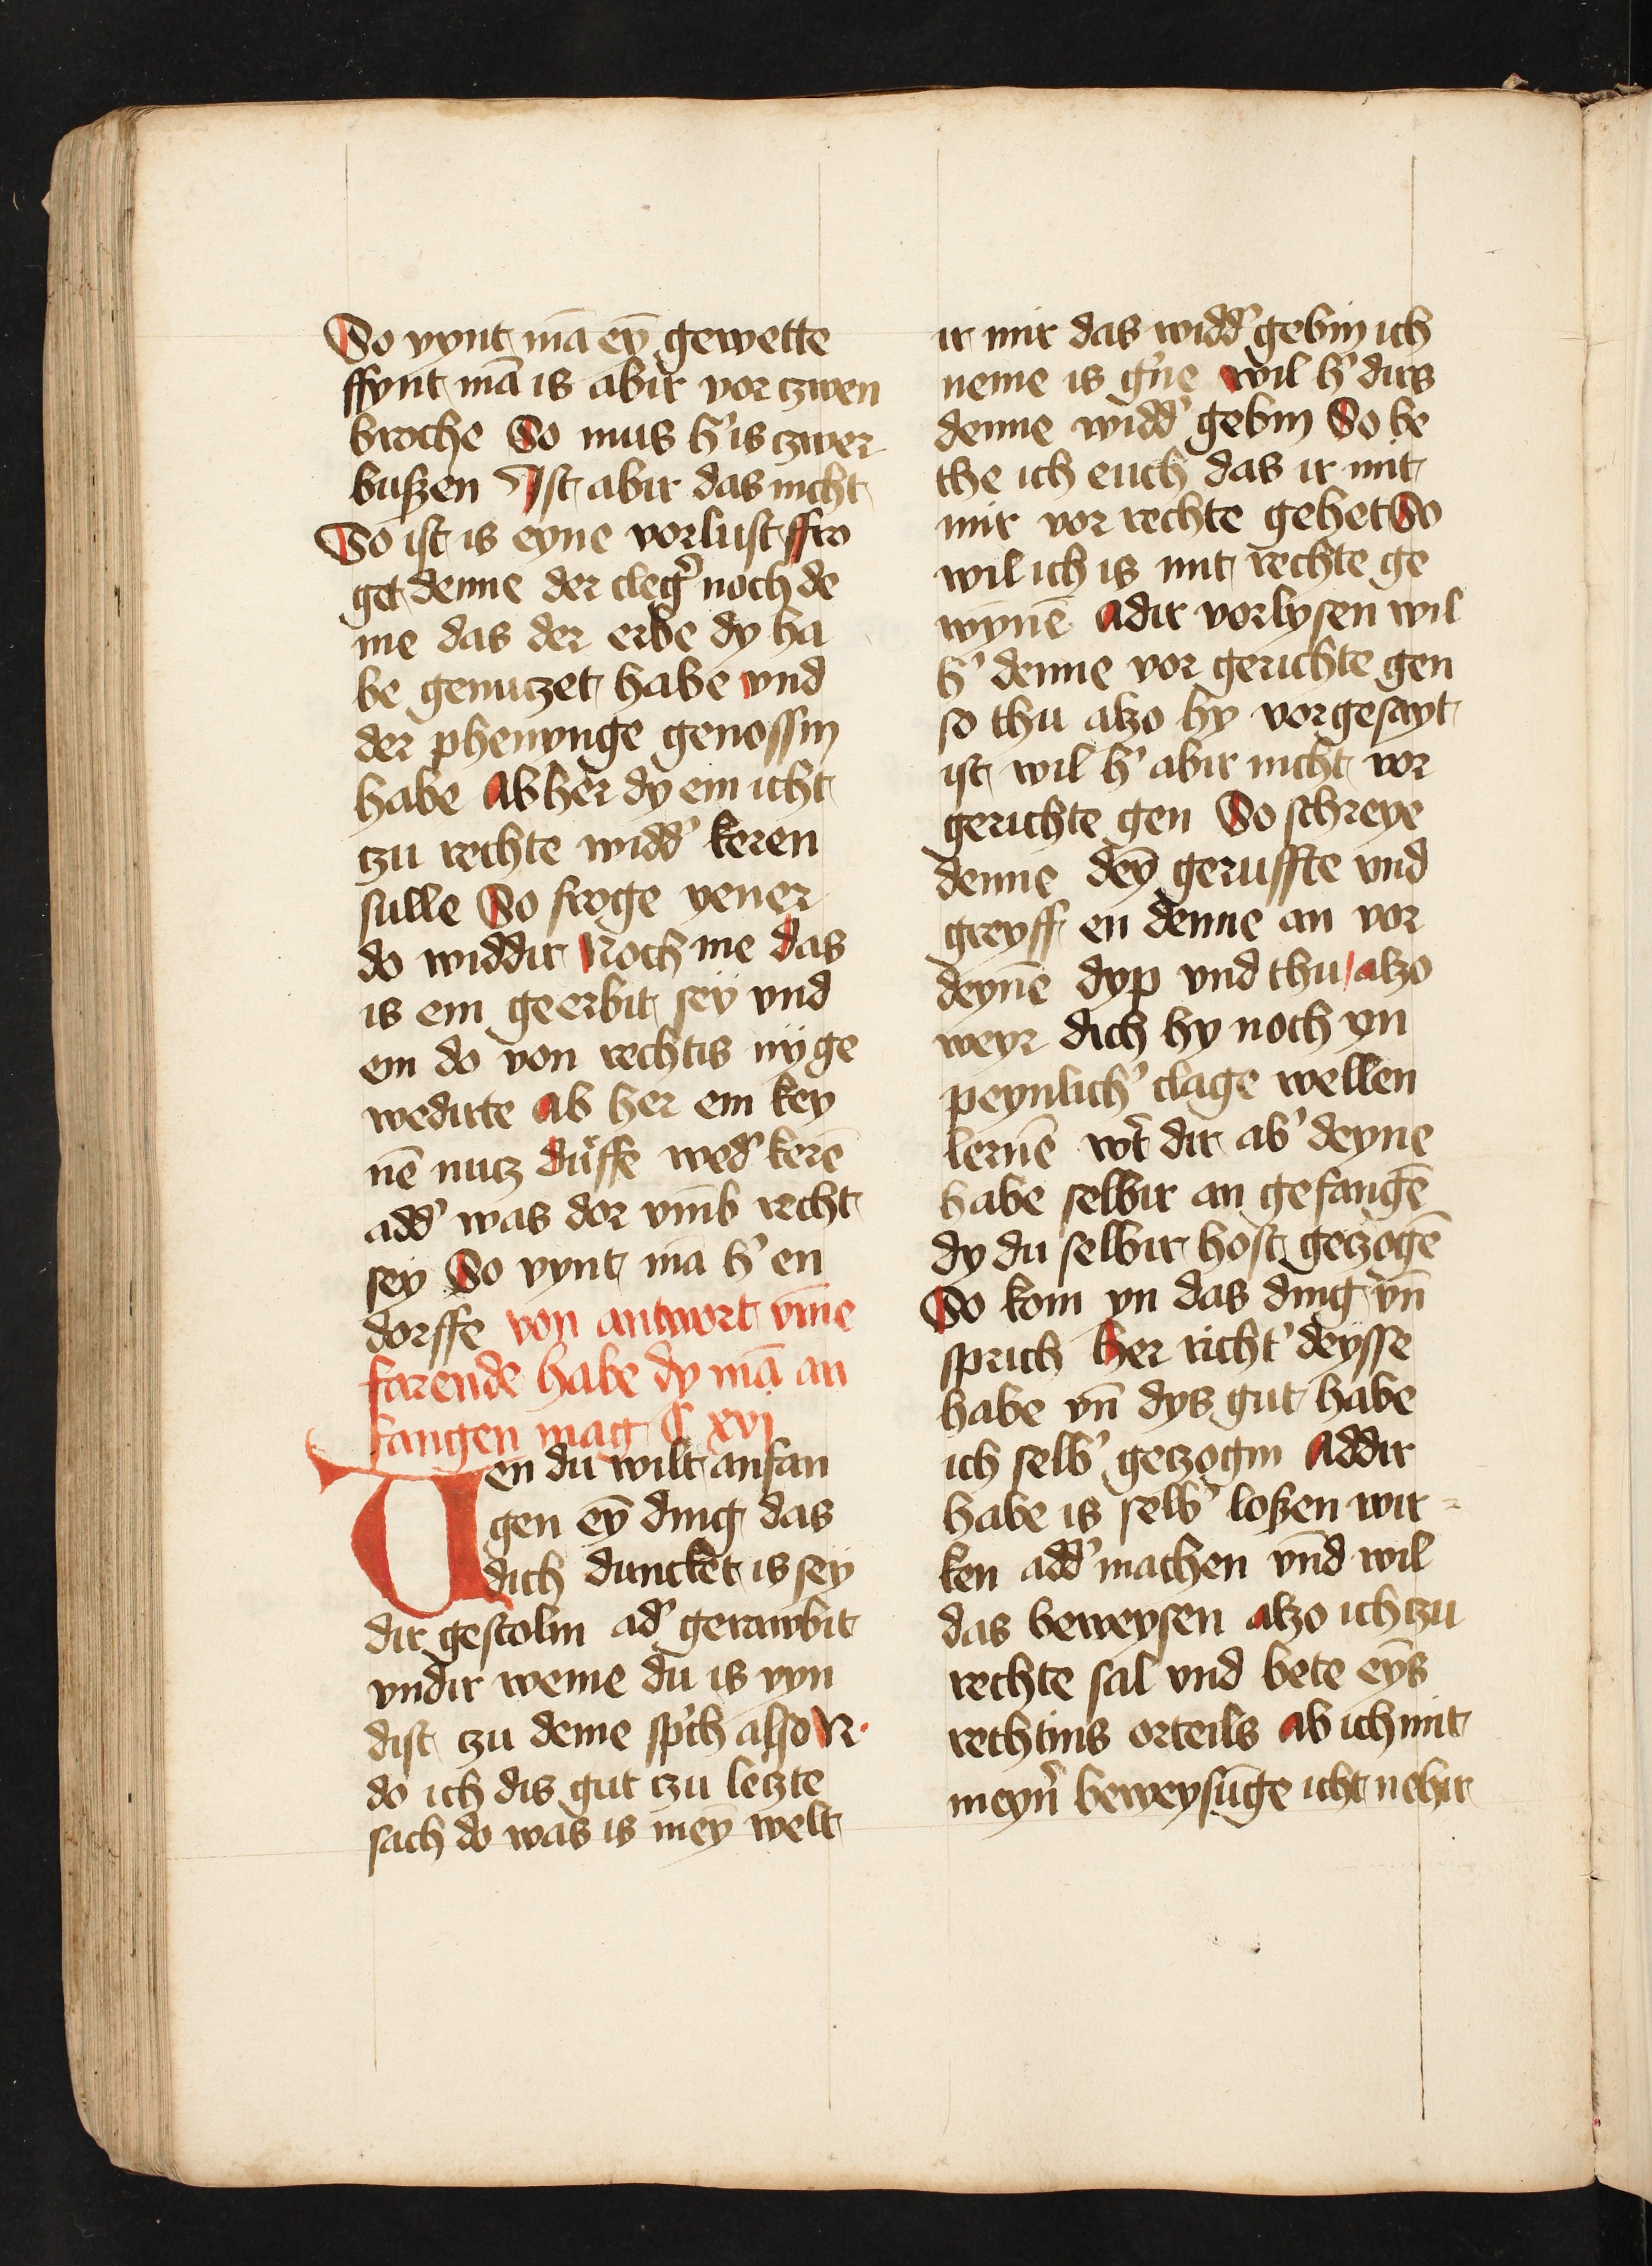 So vynt mā eȳ gewette
ffynt mā is abir vor czwen
broche So mus h' is czwer
bußen Ist abir das nicht
So ist is eyne vorlust ffro
get denne der cleg' noch de
me das der erbe dy ha
be genutzet habe vnd
der phenynge genossin
habe Ab her dy em icht
czu rechte widd' keren
sulle So froge yener
do widdir Noch me das
is em geerbit sey vnd
em do von rechtis ny ge
wedirte Ab her em key
nē nutz durffe wed' kerē
add' was dor vmb recht
sey So vynt mā h' en
dorffe von antwort vm̄e
farende habe dy mā an
fangen mag C xvi
Wen du wilt anfan
gen eȳ ding das
dich duncket is sey
dir gestolin ad' gerawbit
vndir weme du is vyn
dist zu deme sp'ch also N.
do ich dis gut czu letzte
sach do was is meȳ welt
ir mir das widd' gebin ich
neme is g'ne wil h' dirs
denne widd' gebin So be
the ich euch das ir mit
mir vor rechte gehet So
wil ich is mit rechte ge
wynnē Adir vorlysen wil
h' denne vor gerichte gen
so thu alzo hy vorgesayt
ist wil h' abir nicht vor
gerichte gen So schreye
denne deȳ geruffte vnd
greyff en denne an vor
deynē dyp vnd thu alzo
weyr dich hy noch yn
peynlich' clage wellen
lernē w't dir ab' deyne
habe selbir an gefangē
dy du selbir host getzogē
So kom yn das ding vn̄
sprich her richt' deysse
habe vn̄ dys gut habe
ich selb' getzogin Addir
habe is selb' loßen wir=
ken add' machen vnd wil
das beweysen Alzo ich czu
rechte sal vnd bete eȳs
rechtins orteils Ab ich mit
meyn' beweysūge icht nehir